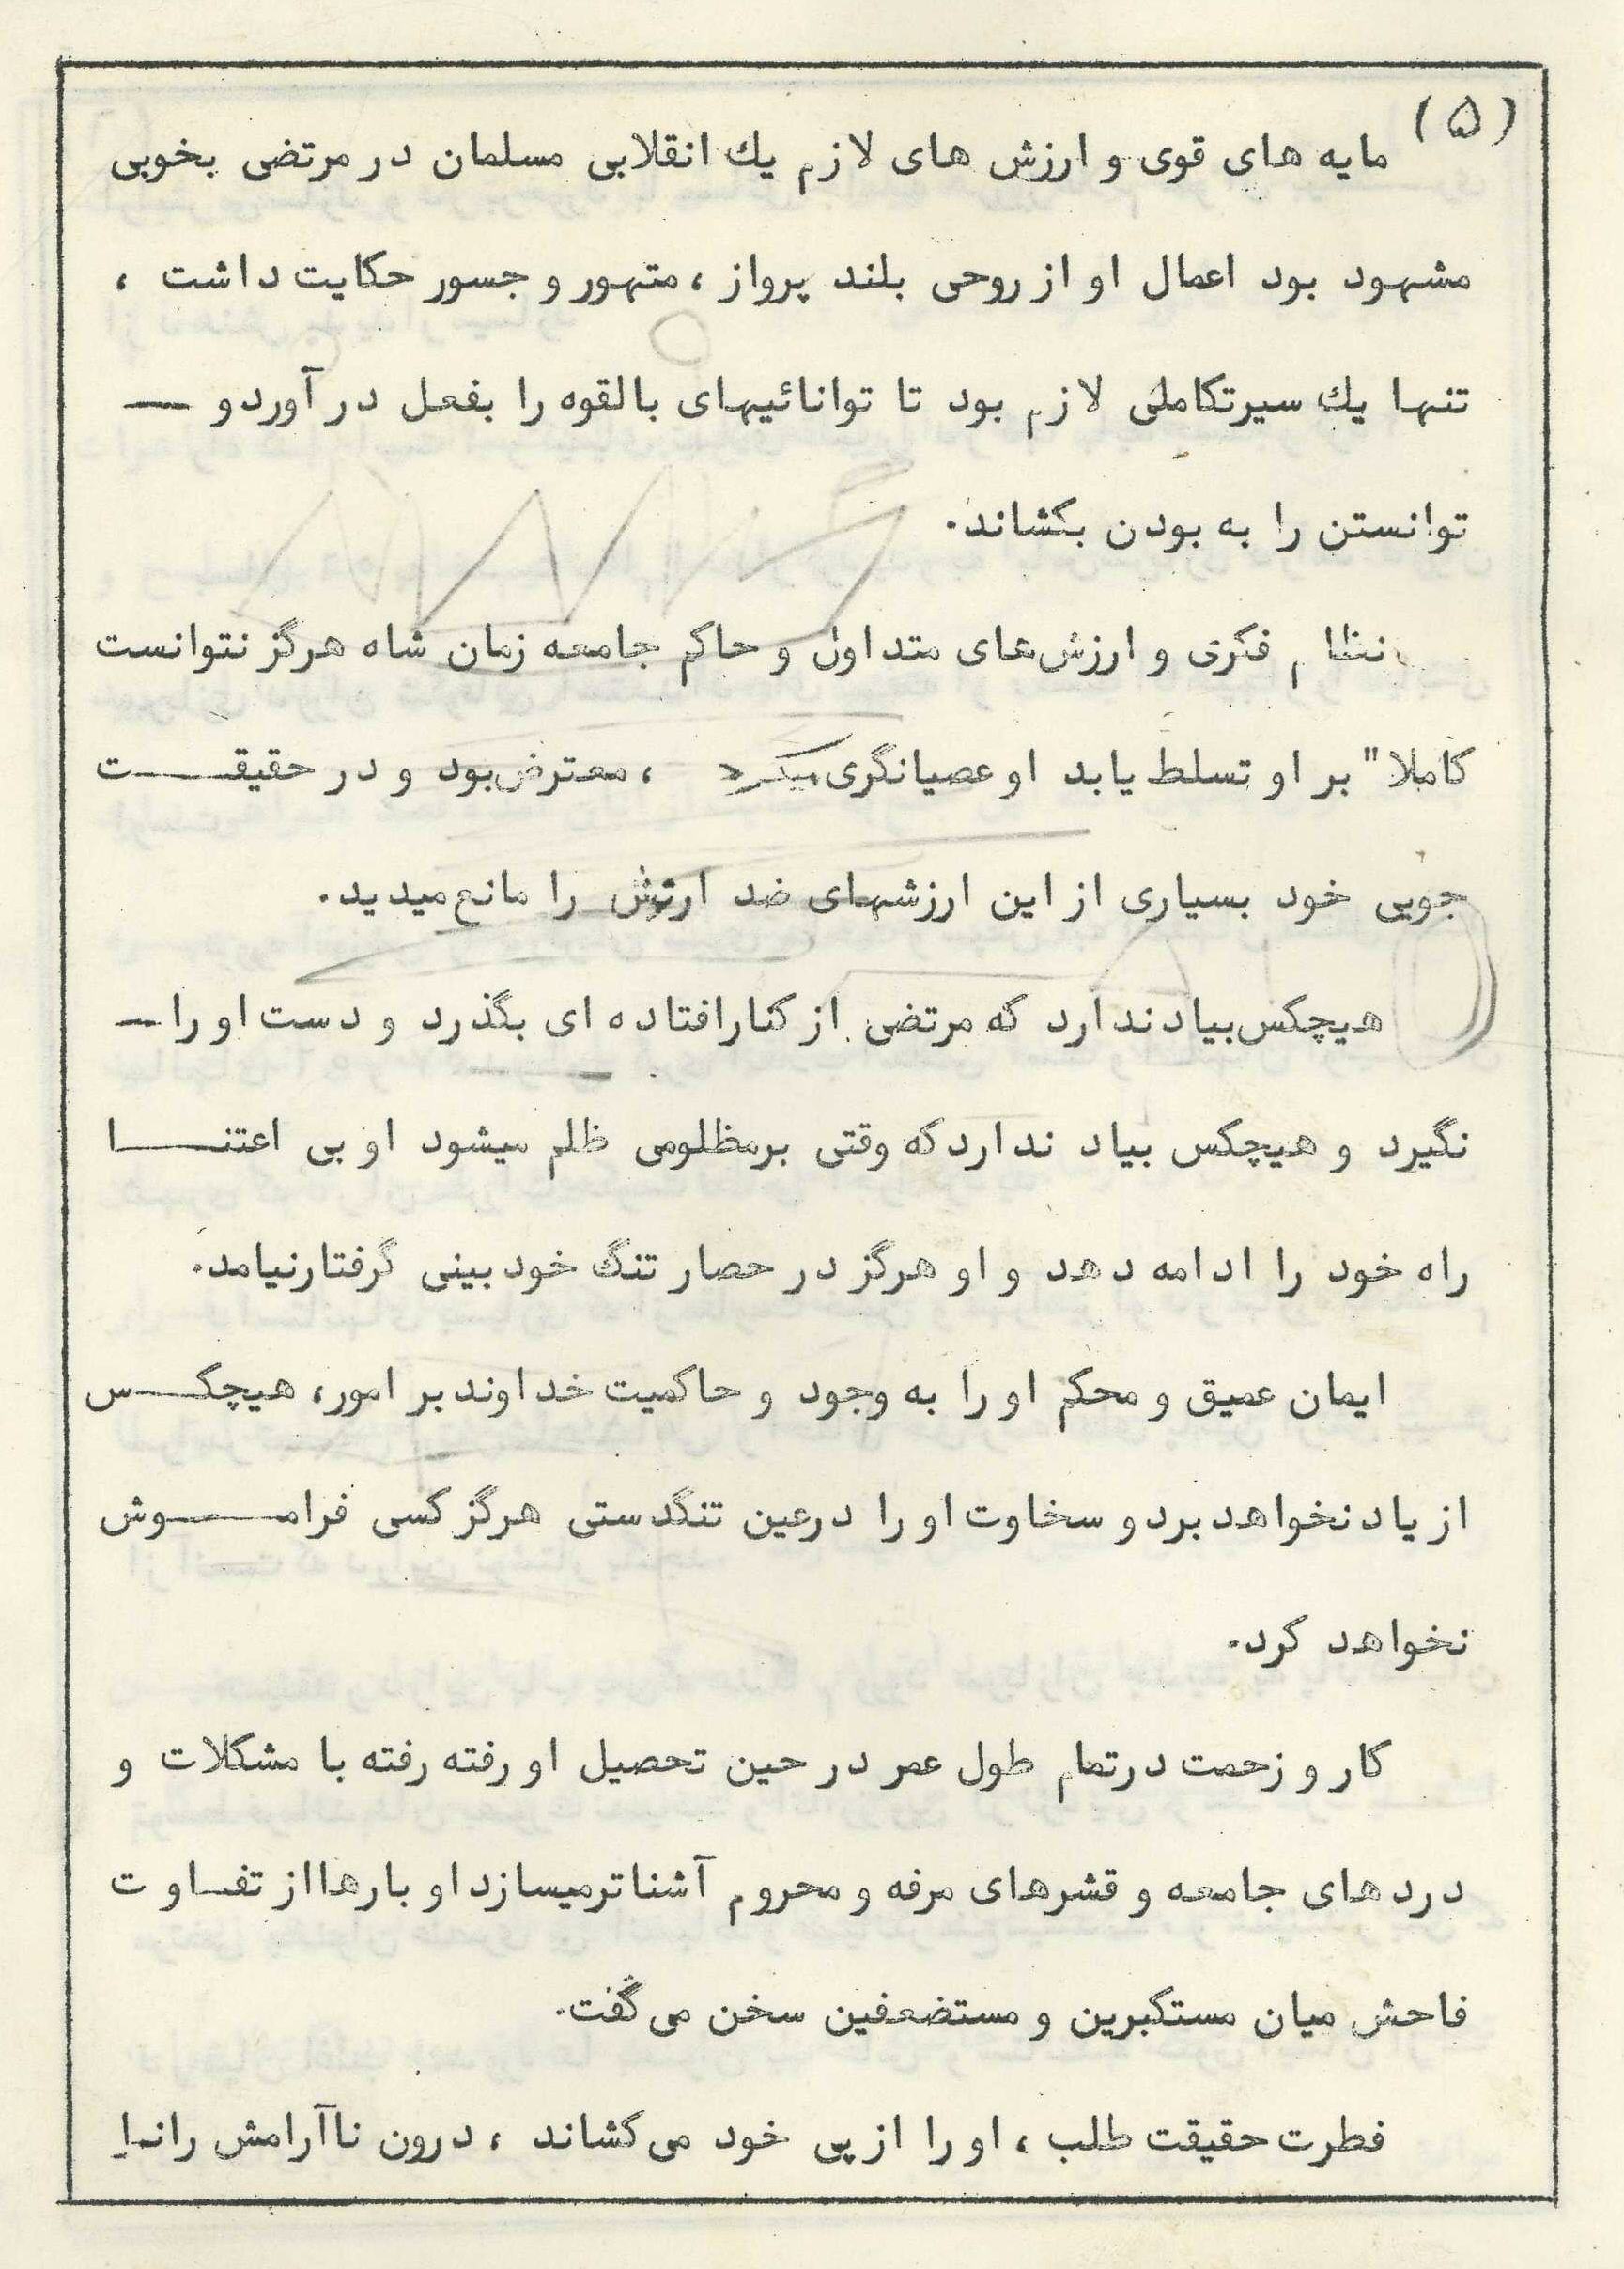 (۵)
مایه های قوی و ارزش های لازم یك انقلابی مسلمان در مرتضی بخوبی
مشهود بود اعمال او از روحی بلند پرواز ، متهور و جسور حکایت داشت ،
تنها یك سیرتکاملی لازم بود تا توانائیهای بالقوه را بفعل در آورد و —
توانستن را به بودن بکشاند.
نظام فکری و ارزش‌های متداول و حاکم جامعه زمان شاه هرگز نتوانست
کاملا" بر او تسلط یابد او عصیانگری میکرد ، معترض بود و در حقیقت
جویی خود بسیاری از این ارزشهای ضد ارزش را مانع میدید.
هیچکس بیاد ندارد که مرتضی از کنار افتاده ای بگذرد و دست او را —
نگیرد و هیچکس بیاد ندارد که وقتی برمظلومی ظلم میشود او بی اعتنا
راه خود را ادامه دهد و او هرگز در حصار تنگ خود بینی گرفتار نیامد.
ایمان عمیق و محکم او را به وجود و حاکمیت خداوند بر امور، هیچکس
از یاد نخواهد برد و سخاوت او را درعین تنگدستی هرگز کسی فراموش
نخواهد کرد.
کار و زحمت درتمام طول عمر در حین تحصیل او رفته رفته با مشکلات و
دردهای جامعه و قشرهای مرفه و محروم آشناتر میسازد او بارها از تفاوت
فاحش میان مستکبرین و مستضعفین سخن می گفت.
فطرت حقیقت طلب ، او را از پی خود می کشاند ، درون ناآرامش را ندا